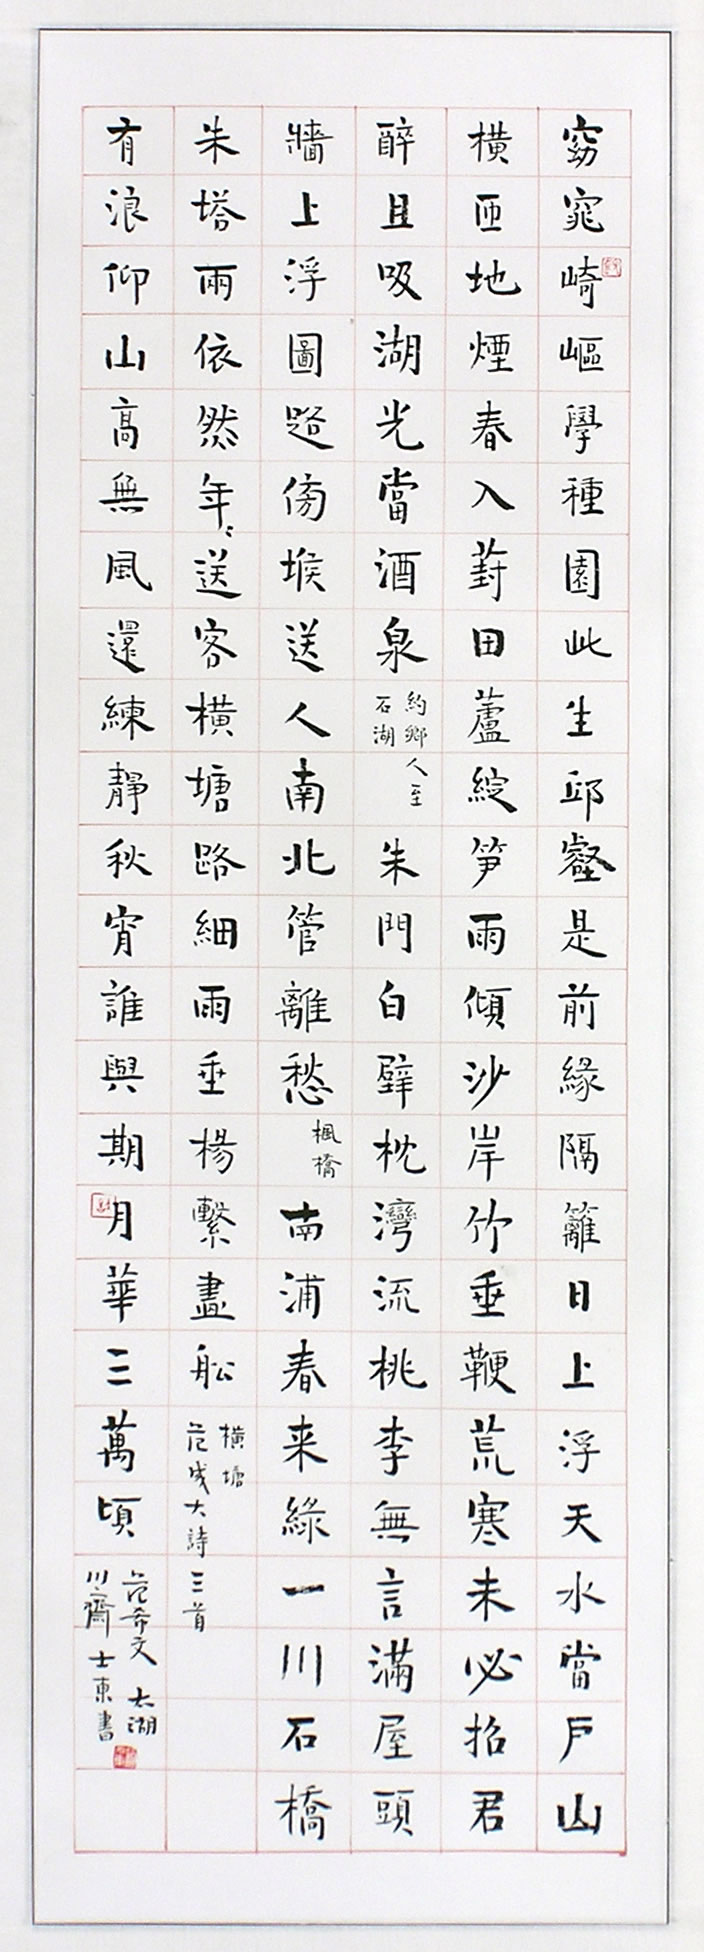 窈窕崎嶇學種園此生邱壑是前緣隔籬日上浮天水當戶山
橫匝地煙春入葑田蘆綻笋雨傾沙岸竹垂鞭荒寒未必招君
醉且吸湖光當酒泉
約鄉人至
石湖
朱門白壁枕灣流桃李無言滿屋頭
牆上浮圖路傍堠送人南北管離愁
楓橋
南浦春来綠一川石橋
朱塔兩依然年〻送客橫塘路細雨垂楊繫畫舩
橫塘
范成大詩三首
有浪仰山高無風還練靜秋宵誰與期月華三萬頃
范希文 太湖
川〻齋士東書